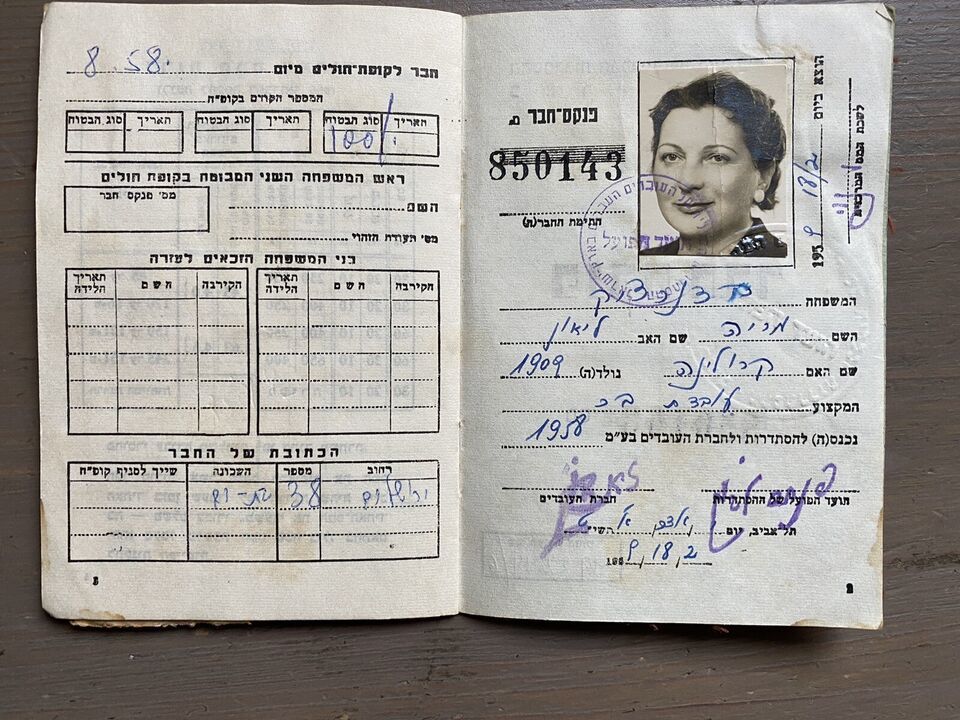 הוצא ביום 18/2 1959
לשכת המס המרכזית
פנקס-חבר מס׳
850143
חתימת החבר(ה)
המשפחה
השם מריה שם האב ליאון
שם האם קרולינה נולד(ה) 1909
המקצוע עובדת
נכנס(ה) להסתדרות ולחברת העובדים בע"מ 1958
הועד הפועל של ההסתדרות חברת העובדים
תל-אביב, יום השי"ט
18, 2, 1959
2
חבר לקופת-חולים מיום 8. 58.
המספר הקודם בקופ"ח
התאריך סוג הבטוח התאריך סוג הבטוח התאריך סוג הבטוח
100%
ראש המשפחה השני המבוטח בקופת חולים
השם
מס׳ פנקס חבר
מס׳ תעודת הזהוי
בני המשפחה הזכאים לעזרה
הקירבה השם תאריך הלידה הקירבה השם תאריך הלידה
הכתובת של החבר
רחוב מספר השכונה שייך לסניף קופ"ח
ירושלים 38 בת-ים
3